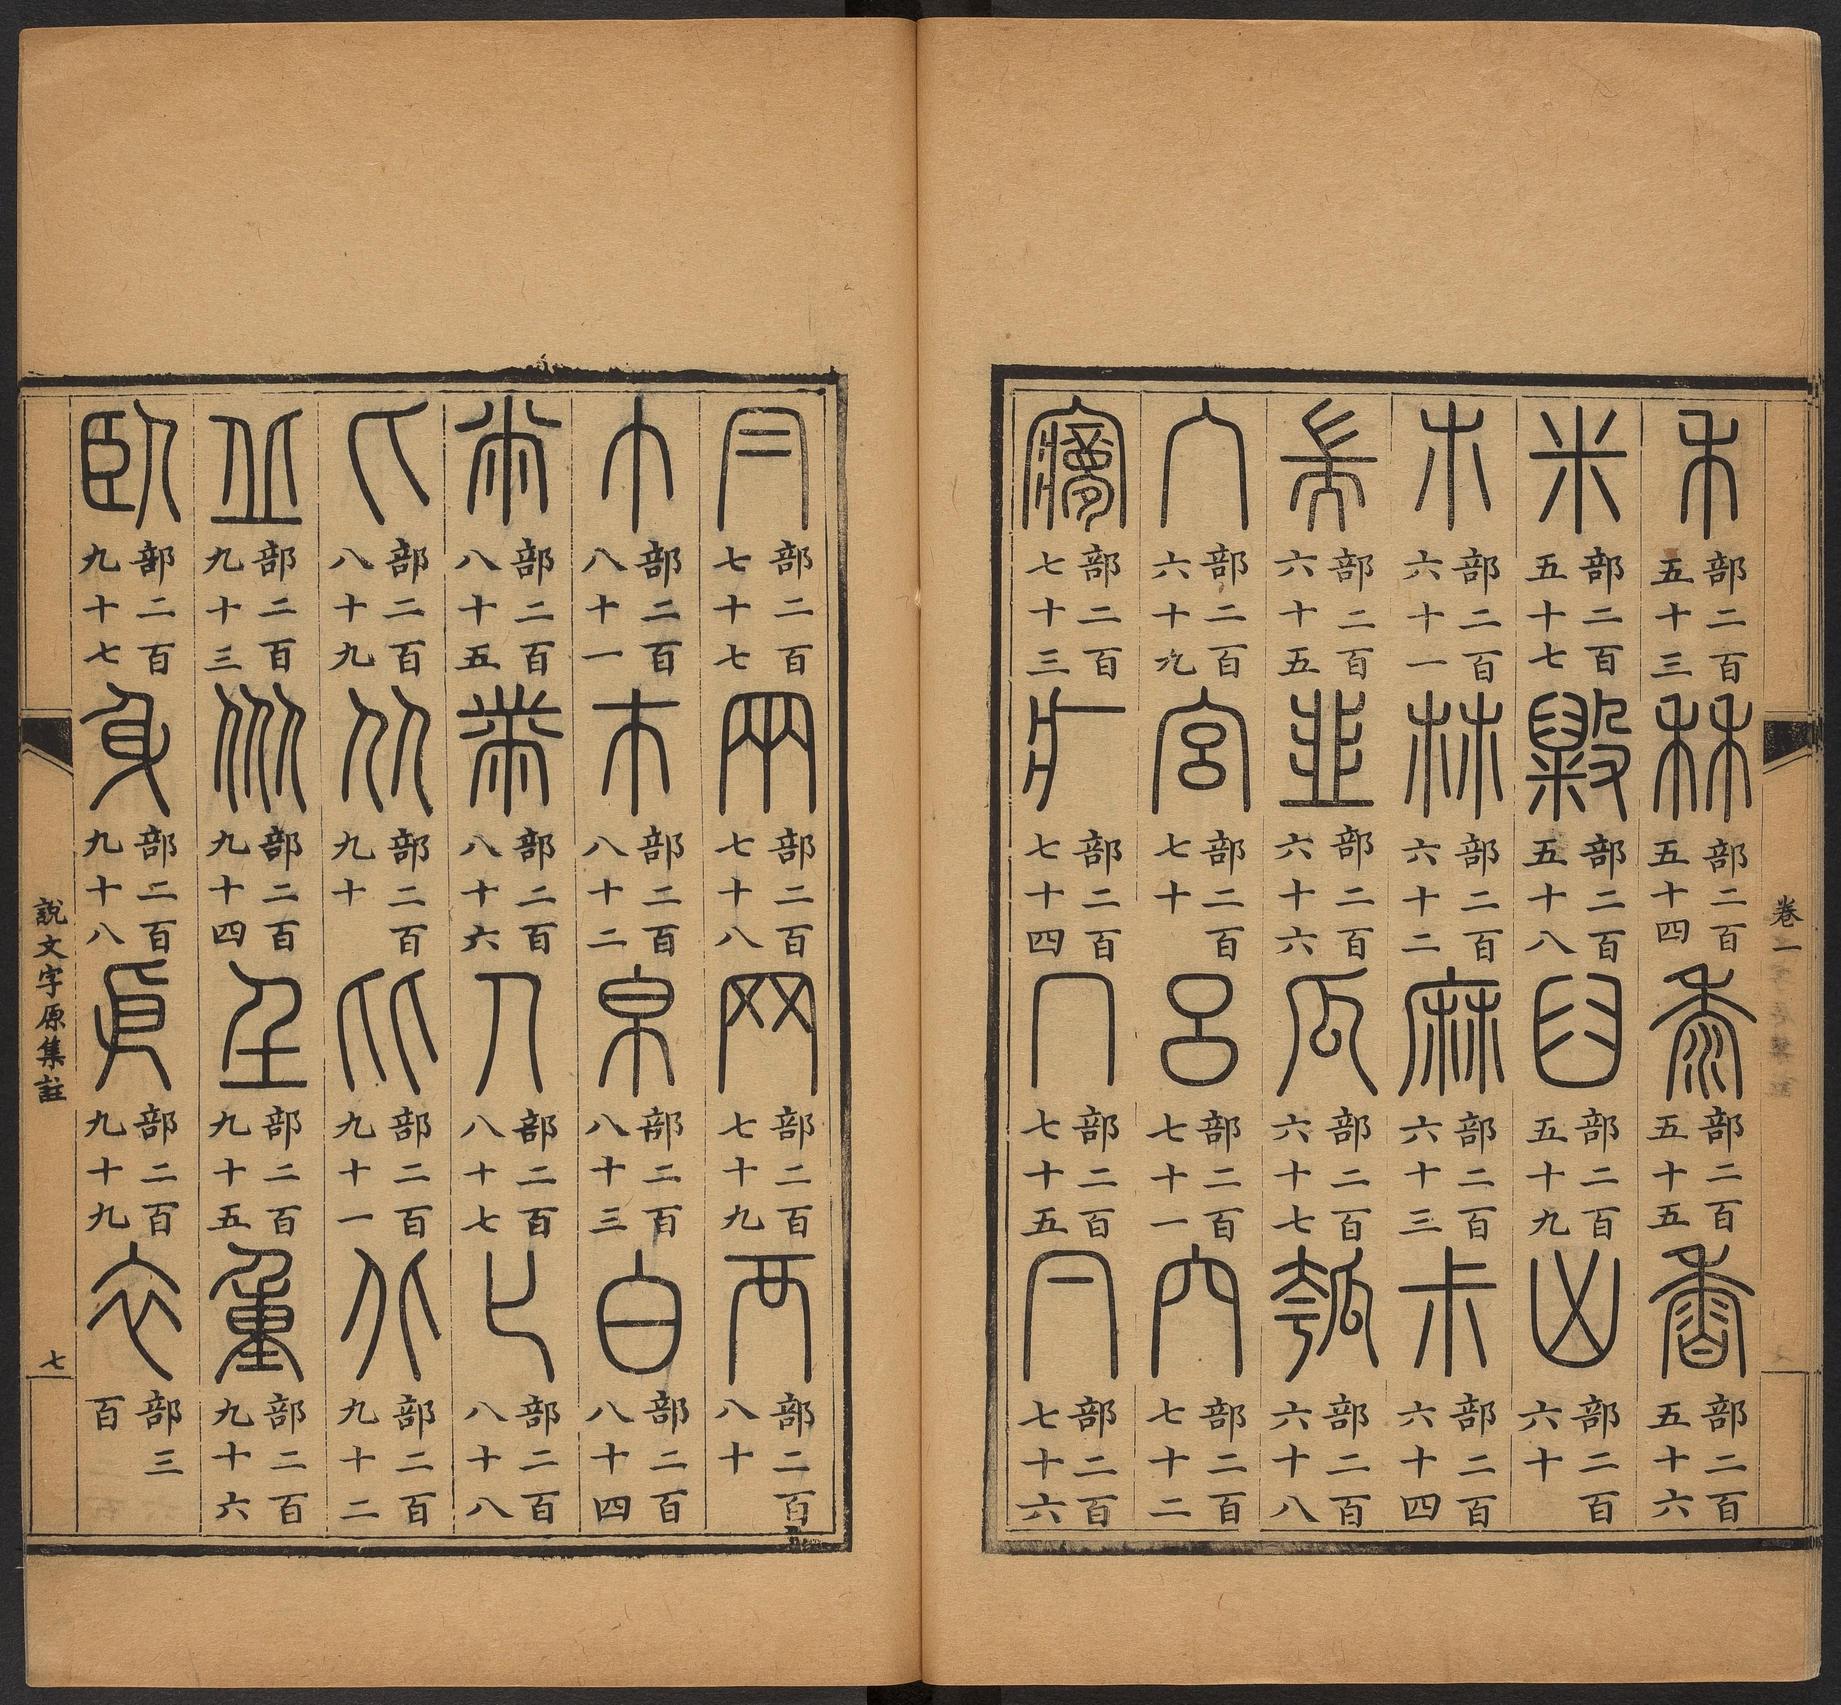 卷一
禾部二百五十三秝部二百五十四黍部二百五十五香部二百五十六
米部二百五十七毇部二百五十八臼部二百五十九凶部二百六十
𣎳部二百六十一𣏟部二百六十二麻部二百六十三尗部二百六十四
耑部二百六十五韭部二百六十六瓜部二百六十七瓠部二百六十八
宀部二百六十九宮部二百七十呂部二百七十一穴部二百七十二
㝱部二百七十三疒部二百七十四冖部二百七十五𠔼部二百七十六
冃部二百七十七㒳部二百七十八网部二百七十九襾部二百八十
巾部二百八十一巿部二百八十二帛部二百八十三白部二百八十四
㡀部二百八十五黹部二百八十六人部二百八十七𠤎部二百八十八
匕部二百八十九从部二百九十比部二百九十一北部二百九十二
丘部二百九十三㐺部二百九十四𡈼部二百九十五重部二百九十六
臥部二百九十七身部二百九十八㐆部二百九十九衣部三百
說文字原集註
七